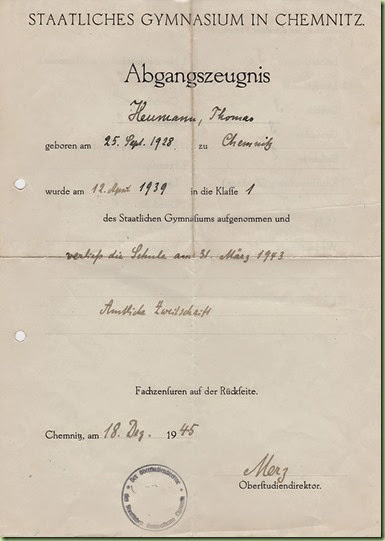 STAATLICHES GYMNASIUM IN CHEMNITZ.
Abgangszeugnis
Heumann, Thomas
geboren am 25. Sept. 1928 zu Chemnitz
wurde am 12. April 1939 in die Klasse 1
des Staatlichen Gymnasiums aufgenommen und
verließ die Schule am 31. März 1943
Amtliche Zweitschrift
Fachzensuren auf der Rückseite.
Chemnitz, am 18. Dez. 1945
Merz
Oberstudiendirektor.